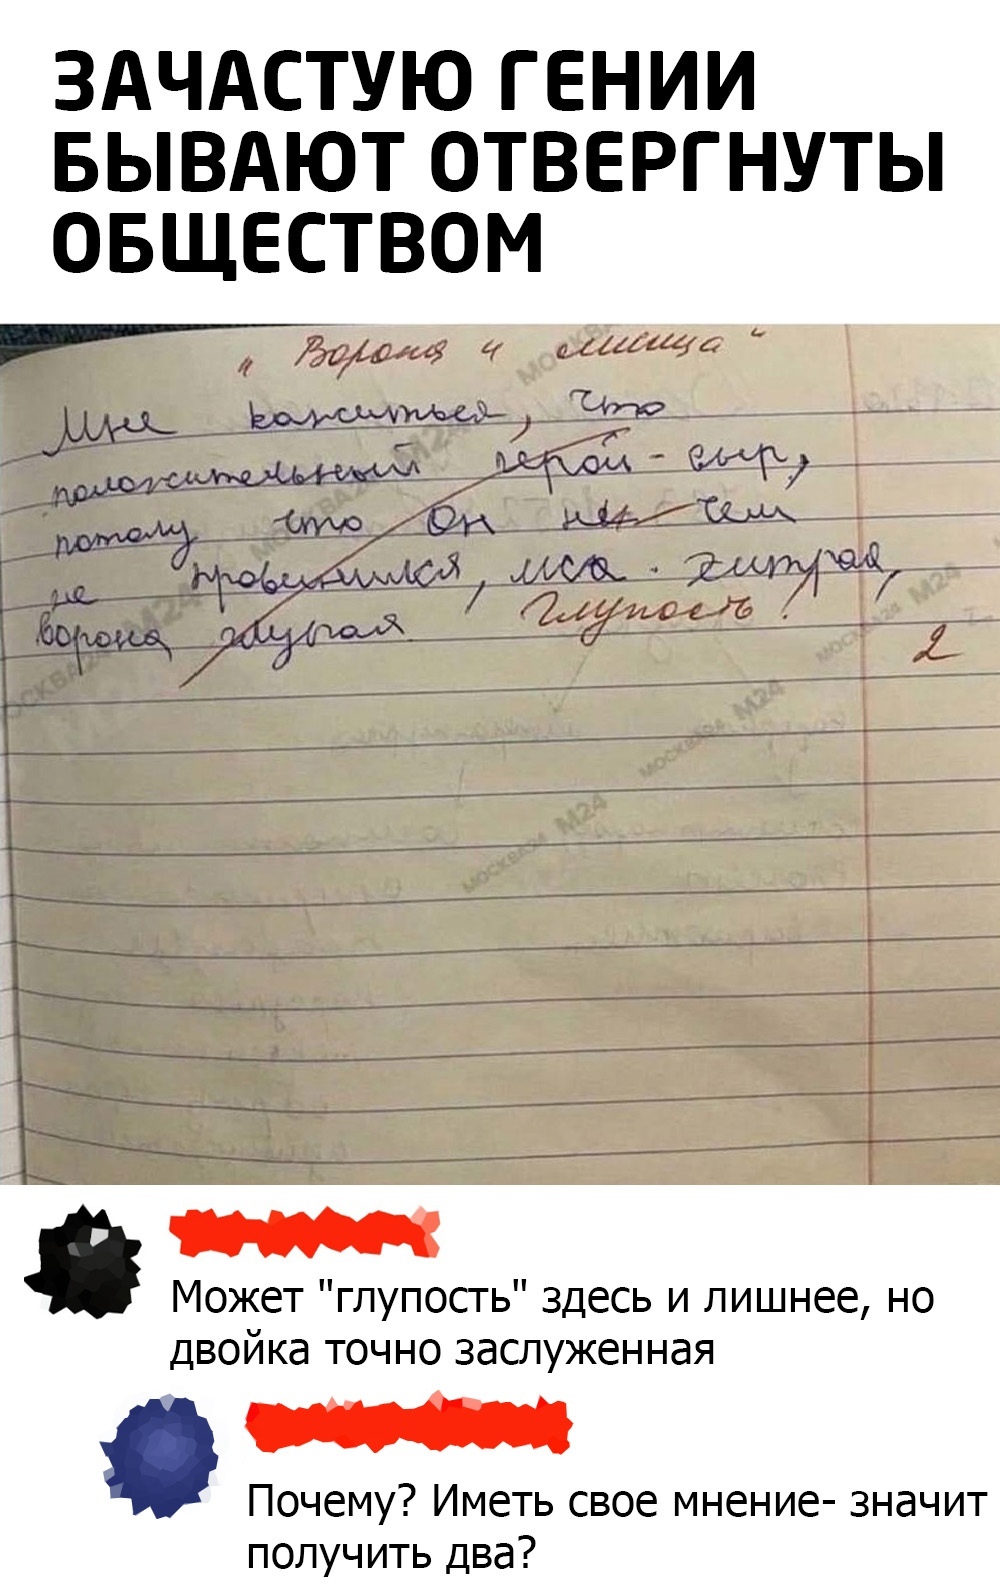 ЗАЧАСТУЮ ГЕНИИ
БЫВАЮТ ОТВЕРГНУТЫ
ОБЩЕСТВОМ
"Ворона и лисица"
Мне кажиться, что
положительный герой - сыр,
потому что он не чем
не провинился, лиса - хитрая,
ворона глупая Глупость!
2
МОСКВА24 М24
МОСКВА24 М24
МОСКВА24 М24
Может "глупость" здесь и лишнее, но
двойка точно заслуженная
Почему? Иметь свое мнение- значит
получить два?